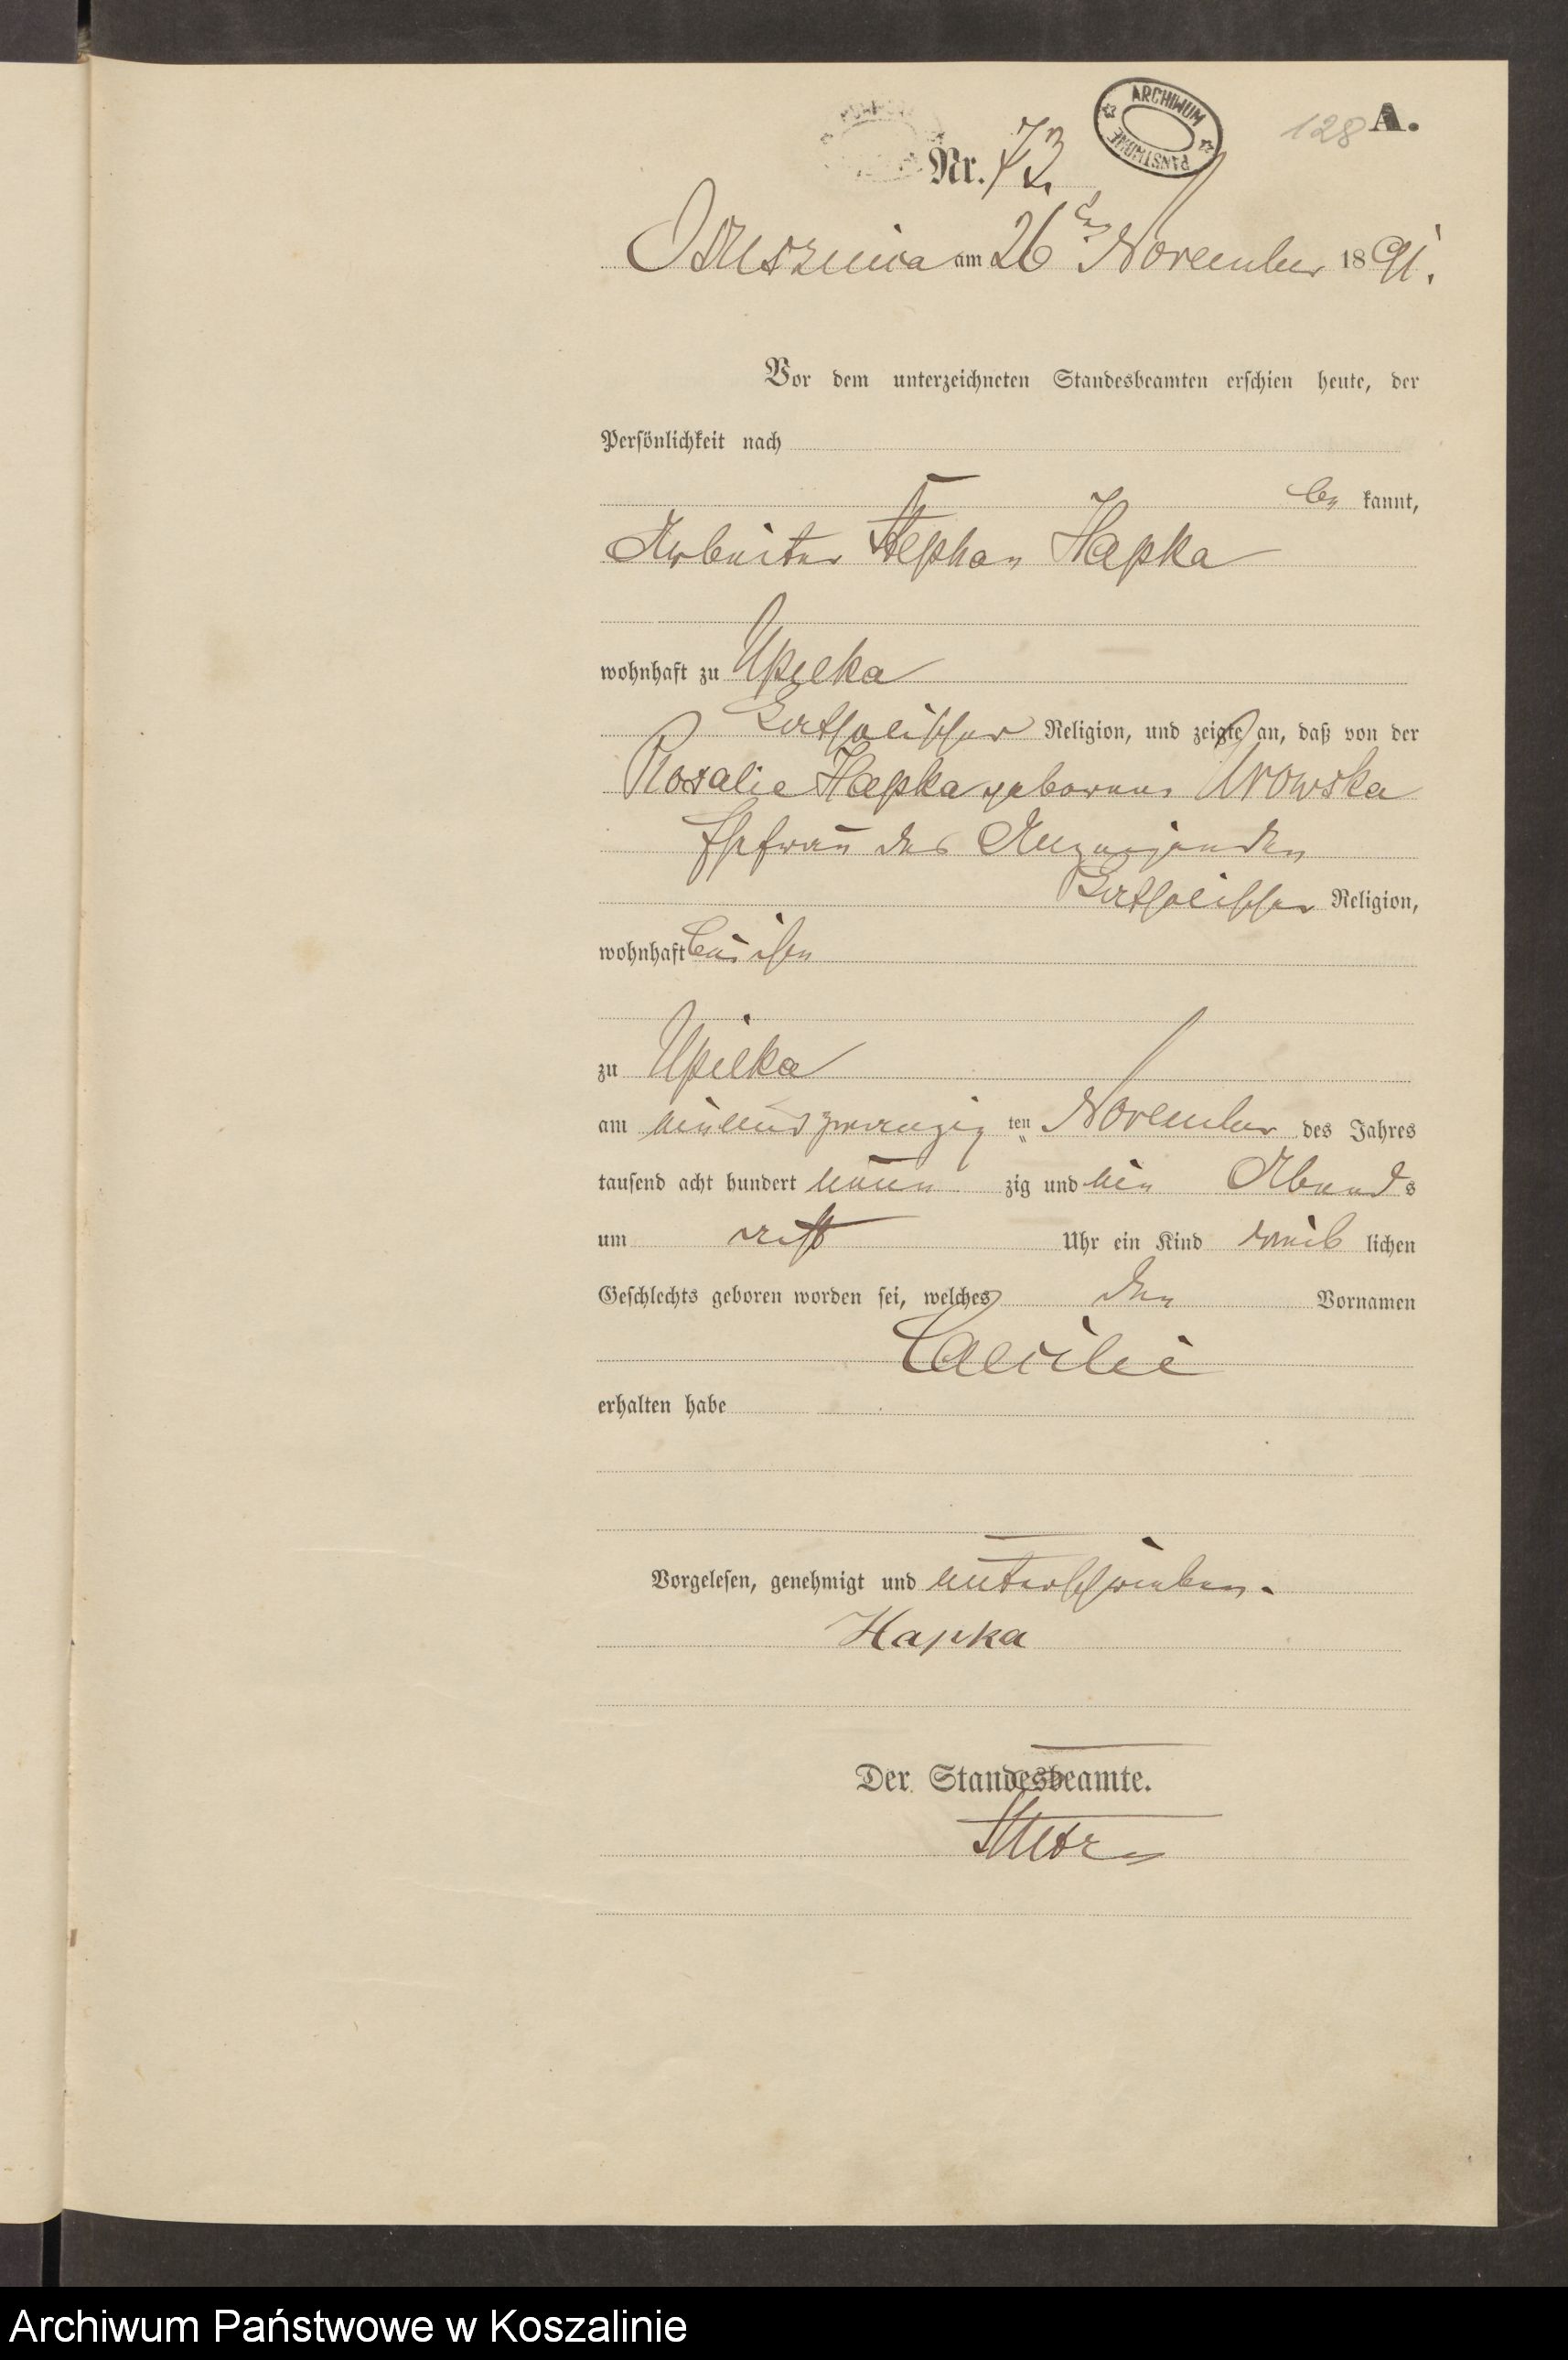 ARCHIWUM PAŃSTWOWE
128 A.
Nr. 73.
Osusznica am 26ten November 1891.
Vor dem unterzeichneten Standesbeamten erschien heute, der
Persönlichkeit nach
be kannt,
Arbeiter Stephan Hapka
wohnhaft zu Upilka
katholischer Religion, und zeigte an, daß von der
Rosalie Hapka geborene Urowska
Ehefrau des Anzeigenden
katholischer Religion,
wohnhaft bei ihm
zu Upilka
am einundzwanzig ten November des Jahres
tausend acht hundert neun zig und ein Abends
um acht Uhr ein Kind weib lichen
Geschlechts geboren worden sei, welches den Vornamen
Caecilie
erhalten habe
Vorgelesen, genehmigt und unterschrieben.
Hapka
Der Standesbeamte.
Archiwum Państwowe w Koszalinie